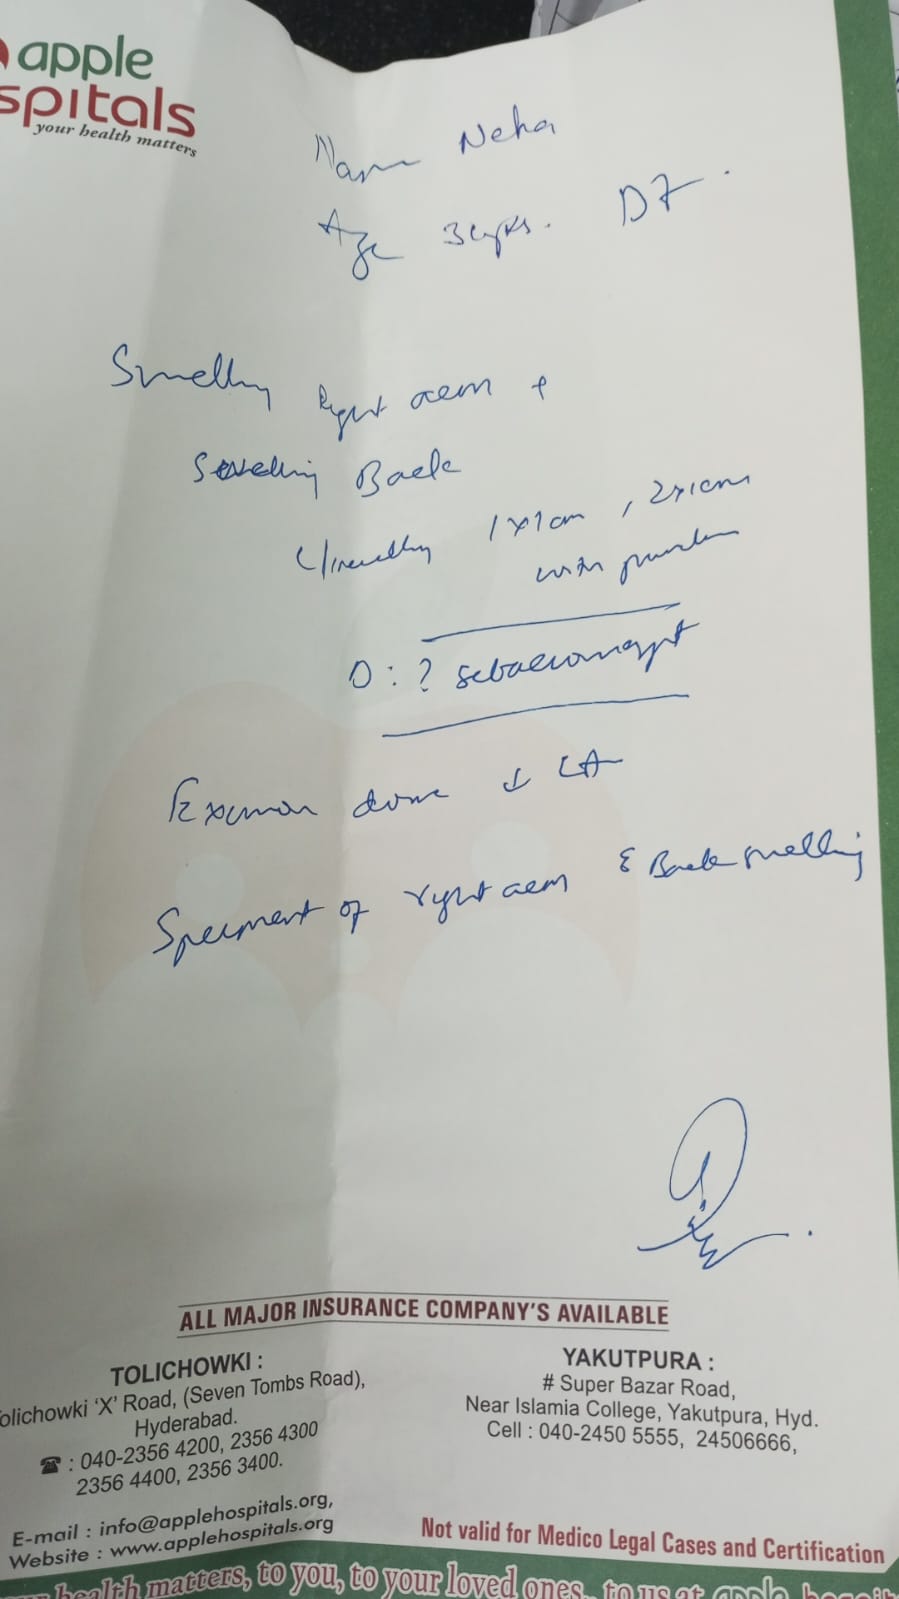 apple
spitals
your health matters
Name Neha
Age 36yrs. D7.
Swelling Right arm &
Swelling Back
Clinically 1x1cm, 2x1cm
with
D: ?
Excision done ↓ LA
Speciment of right arm & Back swelling
ALL MAJOR INSURANCE COMPANY'S AVAILABLE
TOLICHOWKI :
Tolichowki 'X' Road, (Seven Tombs Road),
Hyderabad.
☎ : 040-2356 4200, 2356 4300
2356 4400, 2356 3400.
E-mail : info@applehospitals.org,
Website : www.applehospitals.org
YAKUTPURA :
# Super Bazar Road,
Near Islamia College, Yakutpura, Hyd.
Cell : 040-2450 5555, 24506666,
Not valid for Medico Legal Cases and Certification
health matters, to you, to your loved ones.. to us at apple